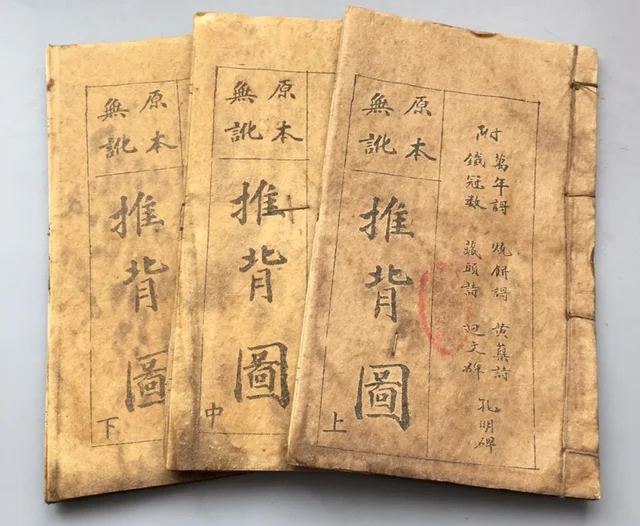 附
萬年謌 燒餅謌 黄蘗詩 孔明碑
鐵冠数 藏頭詩 廻文碑
原本
無訛
推背圖
上
原本
無訛
推背圖
中
原本
無訛
推背圖
下